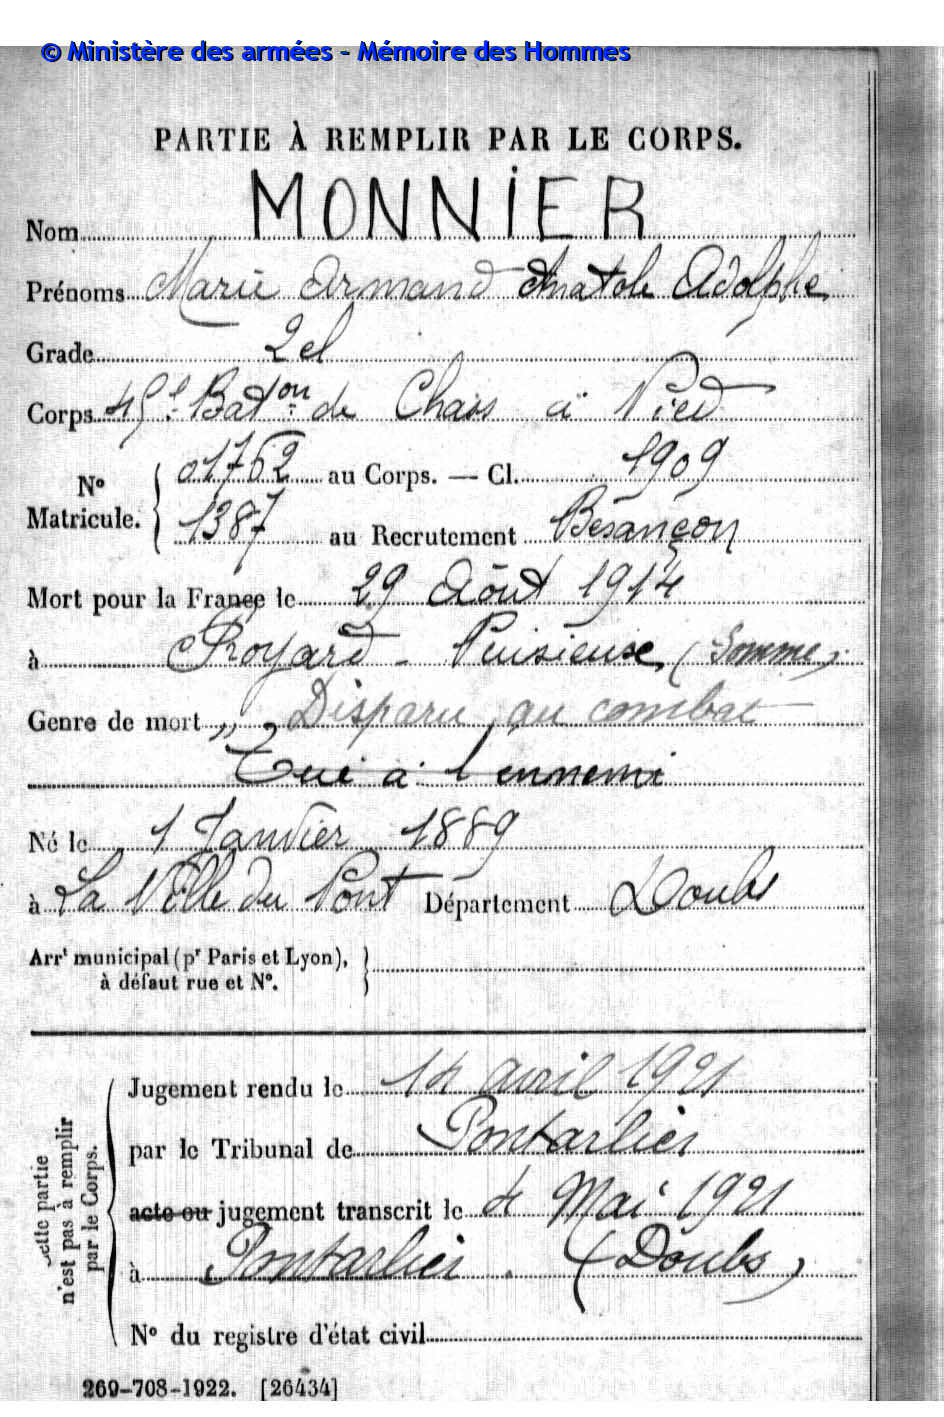 © Ministère des armées - Mémoire des Hommes
PARTIE À REMPLIR PAR LE CORPS.
Nom MONNIER
Prénoms Marie Armand Anatole Adolphe
Grade 2e cl
Corps 45e Baton de Chass à Pied
N° Matricule. { 01762 au Corps. — Cl. 1909
1387 au Recrutement Besançon
Mort pour la France le 29 Août 1914
à Proyard - Puisieux (Somme)
Genre de mort „ Disparu au combat
Tué à l'ennemi
Né le 1 Janvier 1889
à La Ville du Pont Département Doubs
Arrt municipal (pr Paris et Lyon), }
à défaut rue et N°.
Cette partie
n'est pas à remplir
par le Corps.
Jugement rendu le 14 avril 1921
par le Tribunal de Pontarlier
acte ou jugement transcrit le 4 Mai 1921
à Pontarlier (Doubs)
N° du registre d'état civil
269-708-1922. [26434]